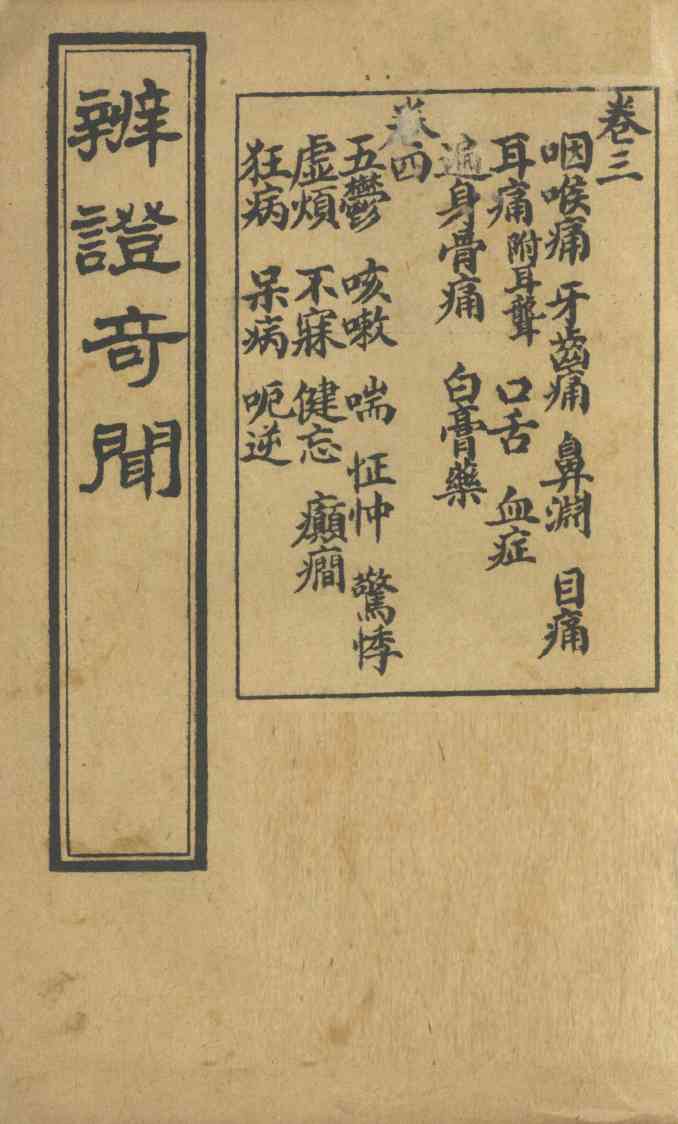 卷三
咽喉痛 牙齒痛 鼻淵 目痛
耳痛 附耳聾 口舌 血症
遍身骨痛 白膏藥
卷四
五鬱 咳嗽 喘 怔忡 驚悸
虛煩 不寐 健忘 癲癇
狂病 呆病 呃逆
辨證奇聞